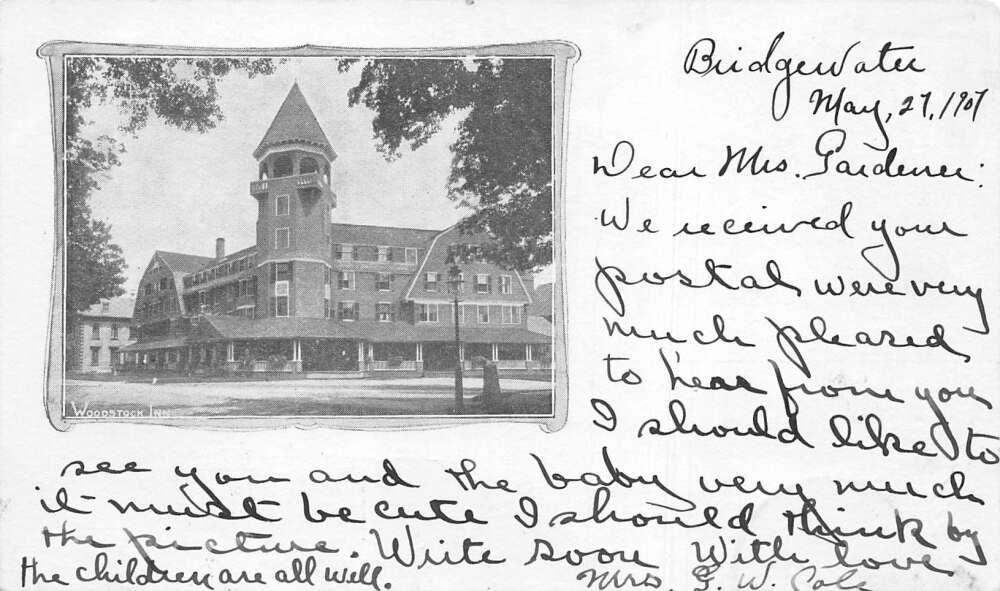 Bridgewater
May, 27, 1907
Dear Mrs. Gardener:
We received your
postal were very
much pleased
to hear from you
I should like to
see you and the baby very much
it must be cute I should think by
the picture. Write soon With love
the children are all well.
Mrs. G. W. Cole
WOODSTOCK INN